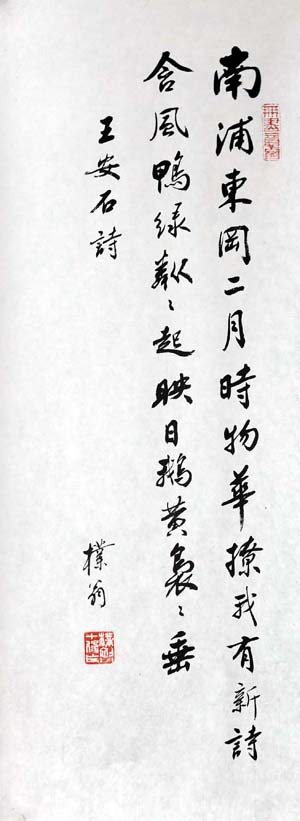 南浦東岡二月時物華撩我有新詩
含風鴨綠粼〻起映日鵝黃裊〻垂
王安石詩
樸翁